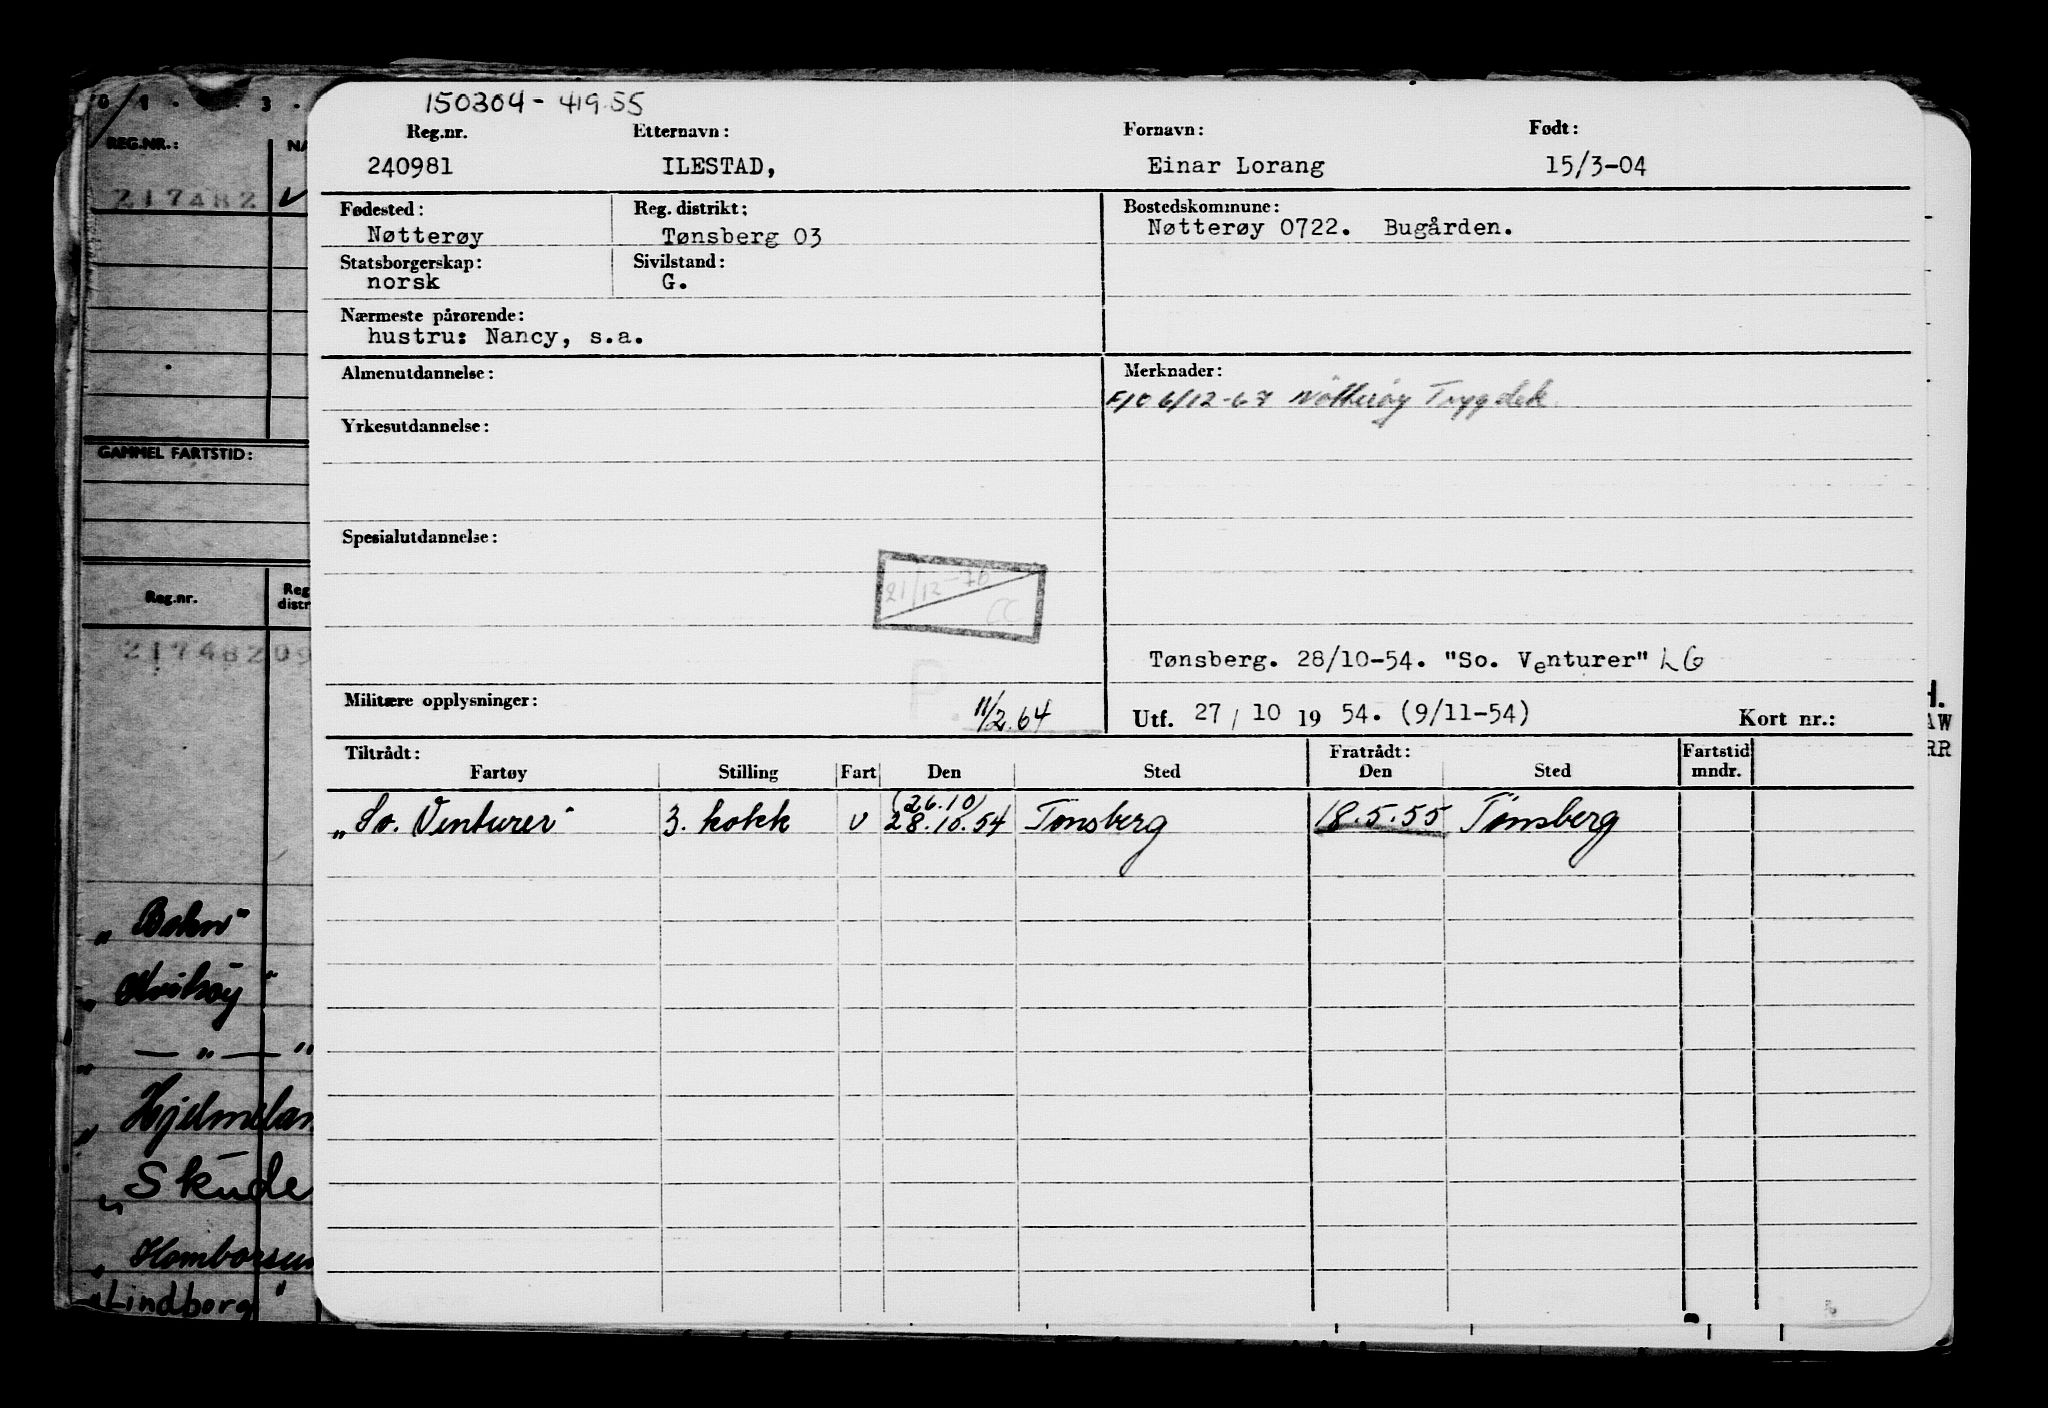 0 1 3
REG.NR.:
NA
217482
GAMMEL FARTSTID:
Reg.nr.
Reg
distr
21748209
„ Bokn"
"
„ — " — "
„ Hjelmelan
„ Skude
„ Homborsun
„ Lindborg "
150304 - 41955
Reg.nr. Etternavn: Fornavn: Født:
240981 ILESTAD, Einar Lorang 15/3-04
Fødested: Reg. distrikt: Bostedskommune:
Nøtterøy Tønsberg 03 Nøtterøy 0722. Bugården.
Statsborgerskap: Sivilstand:
norsk G.
Nærmeste pårørende:
hustru: Nancy, s.a.
Almenutdannelse: Merknader:
6/12-67 Nøtterøy Trygdek
Yrkesutdannelse:
Spesialutdannelse:
21/12-76
CC
Tønsberg. 28/10-54. "So. Venturer" LG
Militære opplysninger: 11/2.64
Utf. 27 / 10 19 54. (9/11-54) Kort nr.:
Tiltrådt: Fratrådt: Fartstid
Fartøy Stilling Fart Den Sted Den Sted mndr.
(26.10)
„So. Venturer" 3. kokk v 28.10.54 Tønsberg 18.5.55 Tønsberg
H.
AW
RR